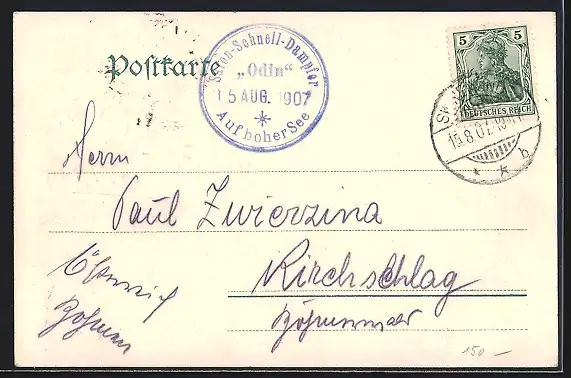 Postkarte
Salon-Schnell-Dampfer
„Odin“
15 AUG. 1907
Auf hoher See
5 5
DEUTSCHES REICH
15.8.07.
* * b
Herrn
Paul Zwierzina
Kirchschlag
Östereich
Böhmen
Böhmerwald
150 –